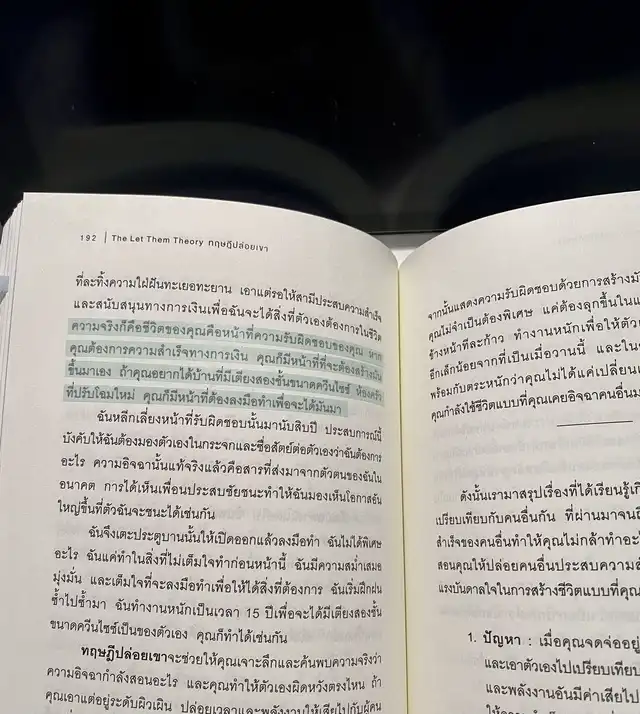 192 | The Let Them Theory ทฤษฎีปล่อยเขา
ที่ละทิ้งความใฝ่ฝันทะเยอทะยาน เอาแต่รอให้สามีประสบความสำเร็จ
และสนับสนุนทางการเงินเพื่อฉันจะได้สิ่งที่ตัวเองต้องการในชีวิต
ความจริงก็คือชีวิตของคุณคือหน้าที่ความรับผิดชอบของคุณ หาก
คุณต้องการความสำเร็จทางการเงิน คุณก็มีหน้าที่ที่จะต้องสร้างมัน
ขึ้นมาเอง ถ้าคุณอยากได้บ้านที่มีเตียงสองชั้นขนาดควีนไซซ์ ห้องครัว
ที่ปรับโฉมใหม่ คุณก็มีหน้าที่ต้องลงมือทำเพื่อจะได้มันมา
ฉันหลีกเลี่ยงหน้าที่รับผิดชอบนั้นมานับสิบปี ประสบการณ์นี้
บังคับให้ฉันต้องมองตัวเองในกระจกและซื่อสัตย์ต่อตัวเองว่าฉันต้องการ
อะไร ความอิจฉานั้นแท้จริงแล้วคือสารที่ส่งมาจากตัวตนของฉันใน
อนาคต การได้เห็นเพื่อนประสบชัยชนะทำให้ฉันมองเห็นโอกาสอัน
ใหญ่ขึ้นที่ตัวฉันจะชนะได้เช่นกัน
ฉันจึงเตะประตูบานนั้นให้เปิดออกแล้วลงมือทำ ฉันไม่ได้พิเศษ
อะไร ฉันแค่ทำในสิ่งที่ไม่เต็มใจทำก่อนหน้านี้ ฉันมีความสม่ำเสมอ
มุ่งมั่น และเต็มใจที่จะลงมือทำเพื่อให้ได้สิ่งที่ต้องการ ฉันเริ่มฝึกฝน
ซ้ำไปซ้ำมา ฉันทำงานหนักเป็นเวลา 15 ปีเพื่อจะได้มีเตียงสองชั้น
ขนาดควีนไซซ์เป็นของตัวเอง คุณก็ทำได้เช่นกัน
ทฤษฎีปล่อยเขาจะช่วยให้คุณเจาะลึกและค้นพบความจริงว่า
ความอิจฉากำลังสอนอะไร และคุณทำให้ตัวเองผิดหวังตรงไหน ถ้า
คุณเอาแต่อยู่ระดับผิวเผิน ปล่อยเวลาและพลังงานให้เสียไปกับผู้คน
จากนั้นแสดงความรับผิดชอบด้วยการสร้าง
คุณไม่จำเป็นต้องพิเศษ แค่ต้องลุกขึ้นใน
ข้างหน้าทีละก้าว ทำงานหนักเพื่อให้ตัว
อีกเล็กน้อยจากที่เป็นเมื่อวานนี้ และใน
พร้อมกับตระหนักว่าคุณไม่ได้แค่เปลี่ยน
คุณกำลังใช้ชีวิตแบบที่คุณเคยอิจฉาคนอื่น
ดังนั้นเรามาสรุปเรื่องที่ได้เรียนรู้
เปรียบเทียบกับคนอื่นกัน ที่ผ่านมา
สำเร็จของคนอื่นทำให้คุณไม่กล้าทำ
สอนคุณให้ปล่อยคนอื่นประสบความ
แรงบันดาลใจในการสร้างชีวิตแบบที่คุณ
1. ปัญหา : เมื่อคุณจดจ่ออยู่
และเอาตัวเองไปเปรียบเทียบ
และพลังงานอันมีค่าเสียไป